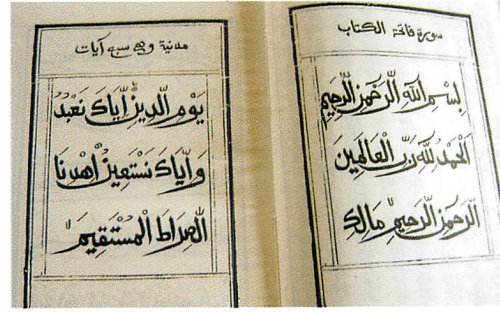 سورة فاتحة الكتاب
بِسْمِ اللّٰهِ الرَّحْمٰنِ الرَّحِيمِ
الْحَمْدُ لِلّٰهِ رَبِّ الْعَالَمِينَ
الرَّحْمٰنِ الرَّحِيمِ مَالِكِ
مدنية وهي سبع آيات
يَوْمِ الدِّينِ إِيَّاكَ نَعْبُدُ
وَإِيَّاكَ نَسْتَعِينُ اهْدِنَا
الصِّرَاطَ الْمُسْتَقِيمَ